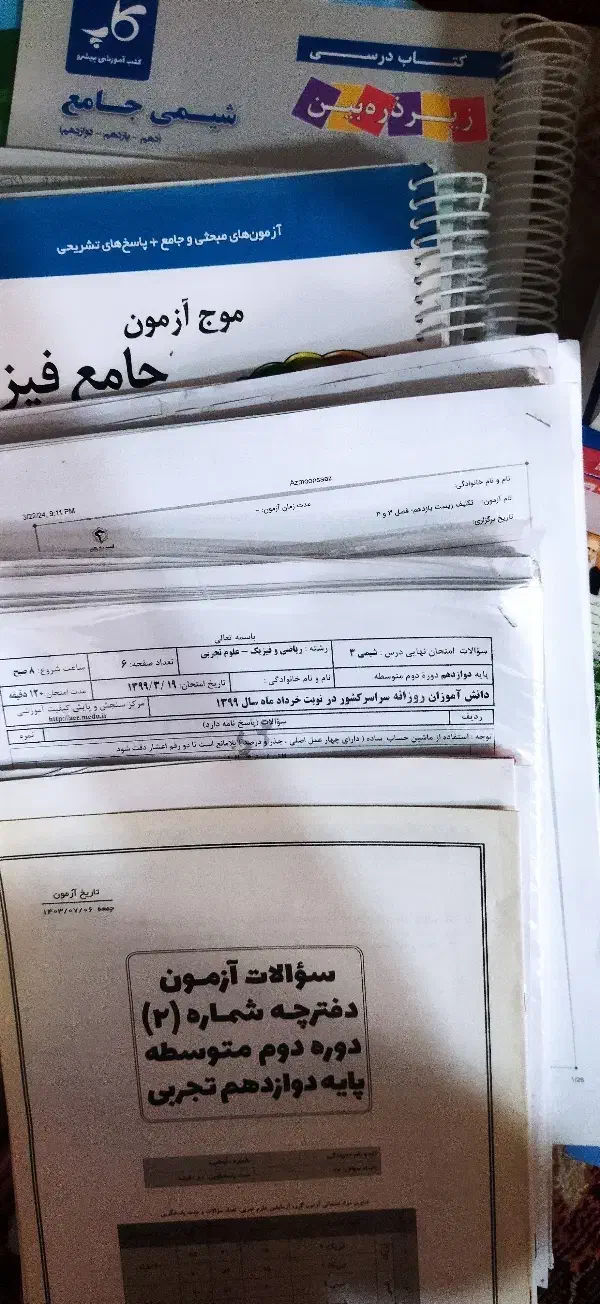 کاپ
کتب آموزشی پیشرو
کتاب درسی
زیر ذره‌بین
شیمی جامع
(دهم - یازدهم - دوازدهم)
آزمون‌های مبحثی و جامع + پاسخ‌های تشریحی
موج آزمون
جامع فیز
3/22/24, 9:11 PM
Azmoonsaaz
نام و نام خانوادگی:
نام آزمون: تکلیف زیست یازدهم- فصل ۳ و ۲
مدت زمان آزمون: -
تاریخ برگزاری:
باسمه تعالی
سؤالات امتحان نهایی درس : شیمی ۳
رشته : ریاضی و فیزیک – علوم تجربی
تعداد صفحه: ۶
ساعت شروع: ۸ صبح
پایه دوازدهم دورهٔ دوم متوسطه
نام و نام خانوادگی :
تاریخ امتحان: ۱۳۹۹/۳/۱۹
مدت امتحان: ۱۲۰ دقیقه
دانش آموزان روزانه سراسر کشور در نوبت خرداد ماه سال ۱۳۹۹
مرکز سنجش و پایش کیفیت آموزشی
http://aee.medu.ir
ردیف
سؤالات (پاسخ نامه دارد)
نمره
توجه : استفاده از ماشین حساب ساده ( دارای چهار عمل اصلی ، جذر و درصد) بلامانع است تا دو رقم اعشار دقت شود
1/26
تاریخ آزمون
جمعه ۱۴۰۳/۰۷/۰۶
سؤالات آزمون
دفترچه شماره (۲)
دوره دوم متوسطه
پایه دوازدهم تجربی